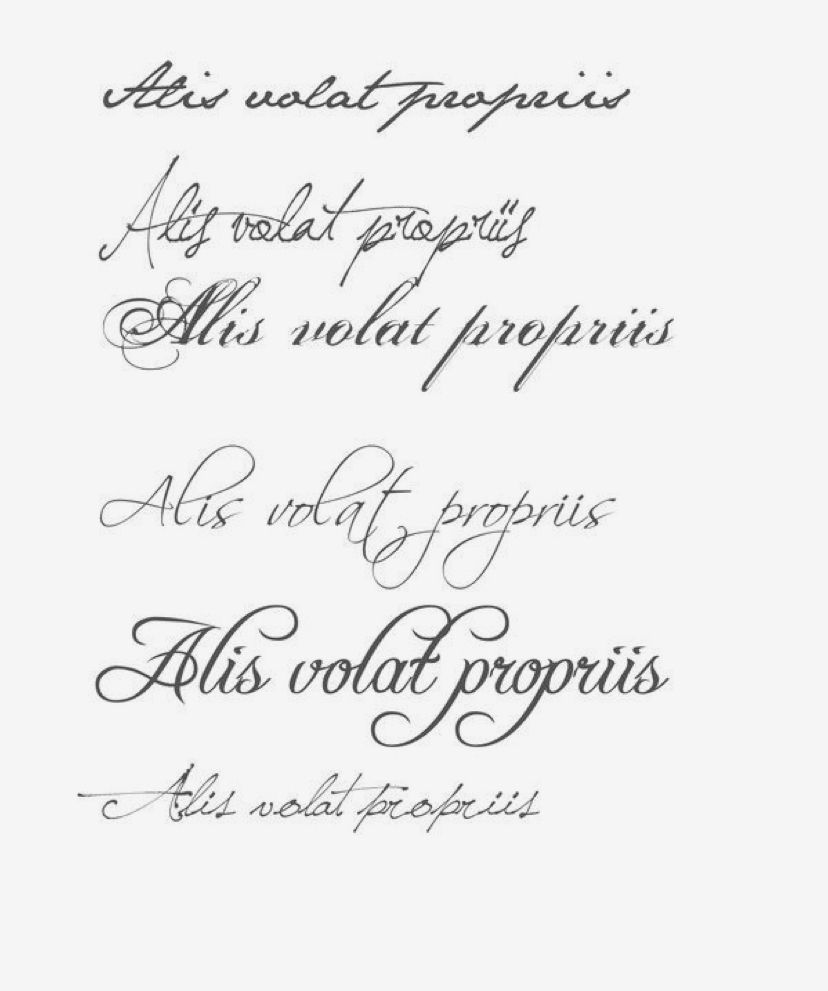 Alis volat propriis
Alis volat propriis
Alis volat propriis
Alis volat propriis
Alis volat propriis
Alis volat propriis